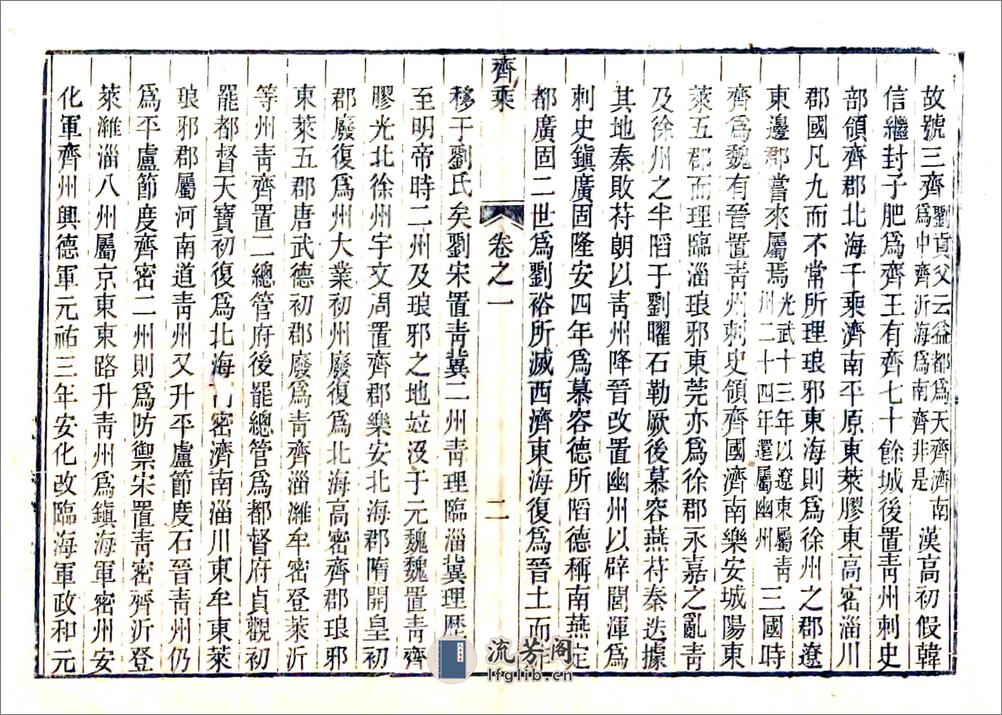 故號三齊劉貢父云益都爲天齊濟南爲中齊沂海爲南齊非是漢高初假韓
信繼封子肥爲齊王有齊七十餘城後置靑州刺史
部領齊郡北海千乘濟南平原東萊膠東高密淄川
郡國凡九而不常所理琅邪東海則爲徐州之郡遼
東邊郡嘗來屬焉光武十三年以遼東屬靑州二十四年還屬幽州三國時
齊爲魏有晉置靑州刺史領齊國濟南樂安城陽東
萊五郡而理臨淄琅邪東莞亦爲徐郡永嘉之亂靑
及徐州之半䧟于劉曜石勒厥後慕容燕苻秦迭據
其地秦敗苻朗以靑州降晉改置幽州以辟閭渾爲
刺史鎮廣固隆安四年爲慕容德所䧟德稱南燕定
都廣固二世爲劉裕所滅西濟東海復爲晉土而
齊乘
卷之一
二
移于劉氏矣劉宋置靑冀二州靑理臨淄冀理歷
至明帝時二州及琅邪之地竝没于元魏魏置靑齊
膠光北徐州宇文高置齊郡樂安北海郡隋開皇初
郡廢復爲州大業初州廢復爲北海高密齊郡琅邪
東萊五郡唐武德初郡廢爲靑齊淄濰牟密登萊沂
等州靑齊置二總管府後罷總管爲都督府貞觀初
罷都督天寶初復爲北海密濟南淄川東牟東萊
琅邪郡屬河南道靑州又升平盧節度石晉靑州仍
爲平盧節度齊密二州則爲防禦宋置靑密齊沂登
萊濰淄八州屬京東東路升靑州爲鎮海軍密州安
化軍齊州興德軍元祐三年安化改臨海軍政和元
流芳阁
lfglib.cn